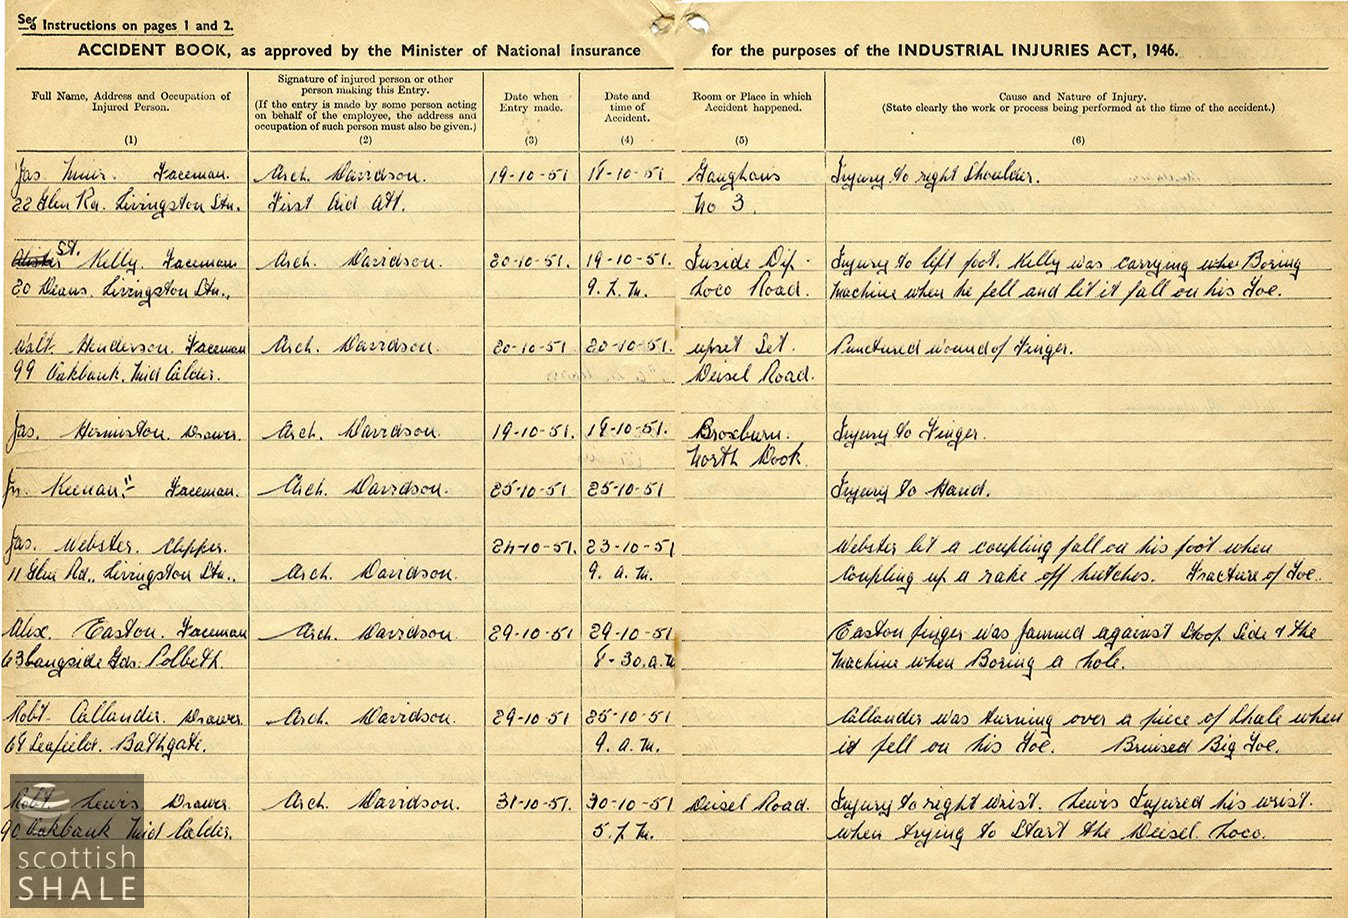 See Instructions on pages 1 and 2.
ACCIDENT BOOK, as approved by the Minister of National Insurance for the purposes of the INDUSTRIAL INJURIES ACT, 1946.
Full Name, Address and Occupation of Injured Person. (1)
Signature of injured person or other person making this Entry. (If the entry is made by some person acting on behalf of the employee, the address and occupation of such person must also be given.) (2)
Date when Entry made. (3)
Date and time of Accident. (4)
Room or Place in which Accident happened. (5)
Cause and Nature of Injury. (State clearly the work or process being performed at the time of the accident.) (6)
Jas. Muir. Faceman. Arch. Davidson. 19-10-51 18-10-51 Gaughans Injury to right Shoulder.
22 Glen Rd. Livingston Stn. First Aid Att. No 3.
St. Kelly. Faceman Arch. Davidson. 20-10-51. 19-10-51. Inside Dip. Injury to left foot. Kelly was carrying the Boring
20 Deans. Livingston Stn., 9. P.M. Loco Road. Machine when he fell and let it fall on his Toe.
Walt. Henderson. Faceman Arch. Davidson. 20-10-51 20-10-51. upset Set. Punctured wound of Finger.
99 Oakbank. Mid Calder. Deisel Road.
Jas. Hermiston. Drawer. Arch. Davidson. 19-10-51. 19-10-51. Broxburn. Injury to Finger.
North Dook.
Keenan. Faceman. Arch. Davidson. 25-10-51 25-10-51 Injury to Hand.
Jas. Webster. Clipper. 24-10-51. 23-10-51 Webster let a coupling fall on his foot when
11 Glen Rd., Livingston Stn., Arch. Davidson. 9. a.m. Coupling up a rake off hutches. Fracture of Toe.
Alex. Easton. Faceman Arch. Davidson. 29-10-51 29-10-51 Easton finger was Jammed against Stoop Side & the
63 Langside Gds. Polbeth. 8-30.a.m Machine when Boring a hole.
Robt. Callander. Drawer Arch. Davidson. 29-10-51 25-10-51 Callander was turning over a piece of Shale when
68 Leafield. Bathgate. 9. a.m. it fell on his Toe. Bruised Big Toe.
Robt. Lewis. Drawer. Arch. Davidson. 31-10-51. 30-10-51 Deisel Road. Injury to right wrist. Lewis Injured his wrist.
90 Oakbank Mid Calder. 5. P.M. when trying to Start the Deisel Loco.
scottish
SHALE